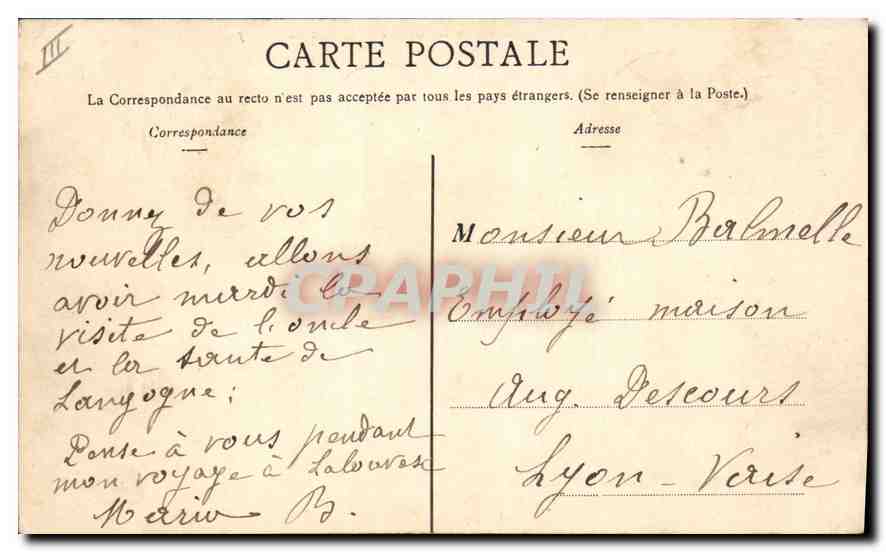 III
CARTE POSTALE
La Correspondance au recto n'est pas acceptée par tous les pays étrangers. (Se renseigner à la Poste.)
Correspondance
Adresse
Donnez de vos
nouvelles, allons
avoir mardi la
visite de l'oncle
et la tante de
Langogne;
Pense à vous pendant
mon voyage à Lalouvesc
Marius B.
Monsieur Balmelle
Employé maison
Aug. Descours
Lyon - Vaise
CPAPHIL